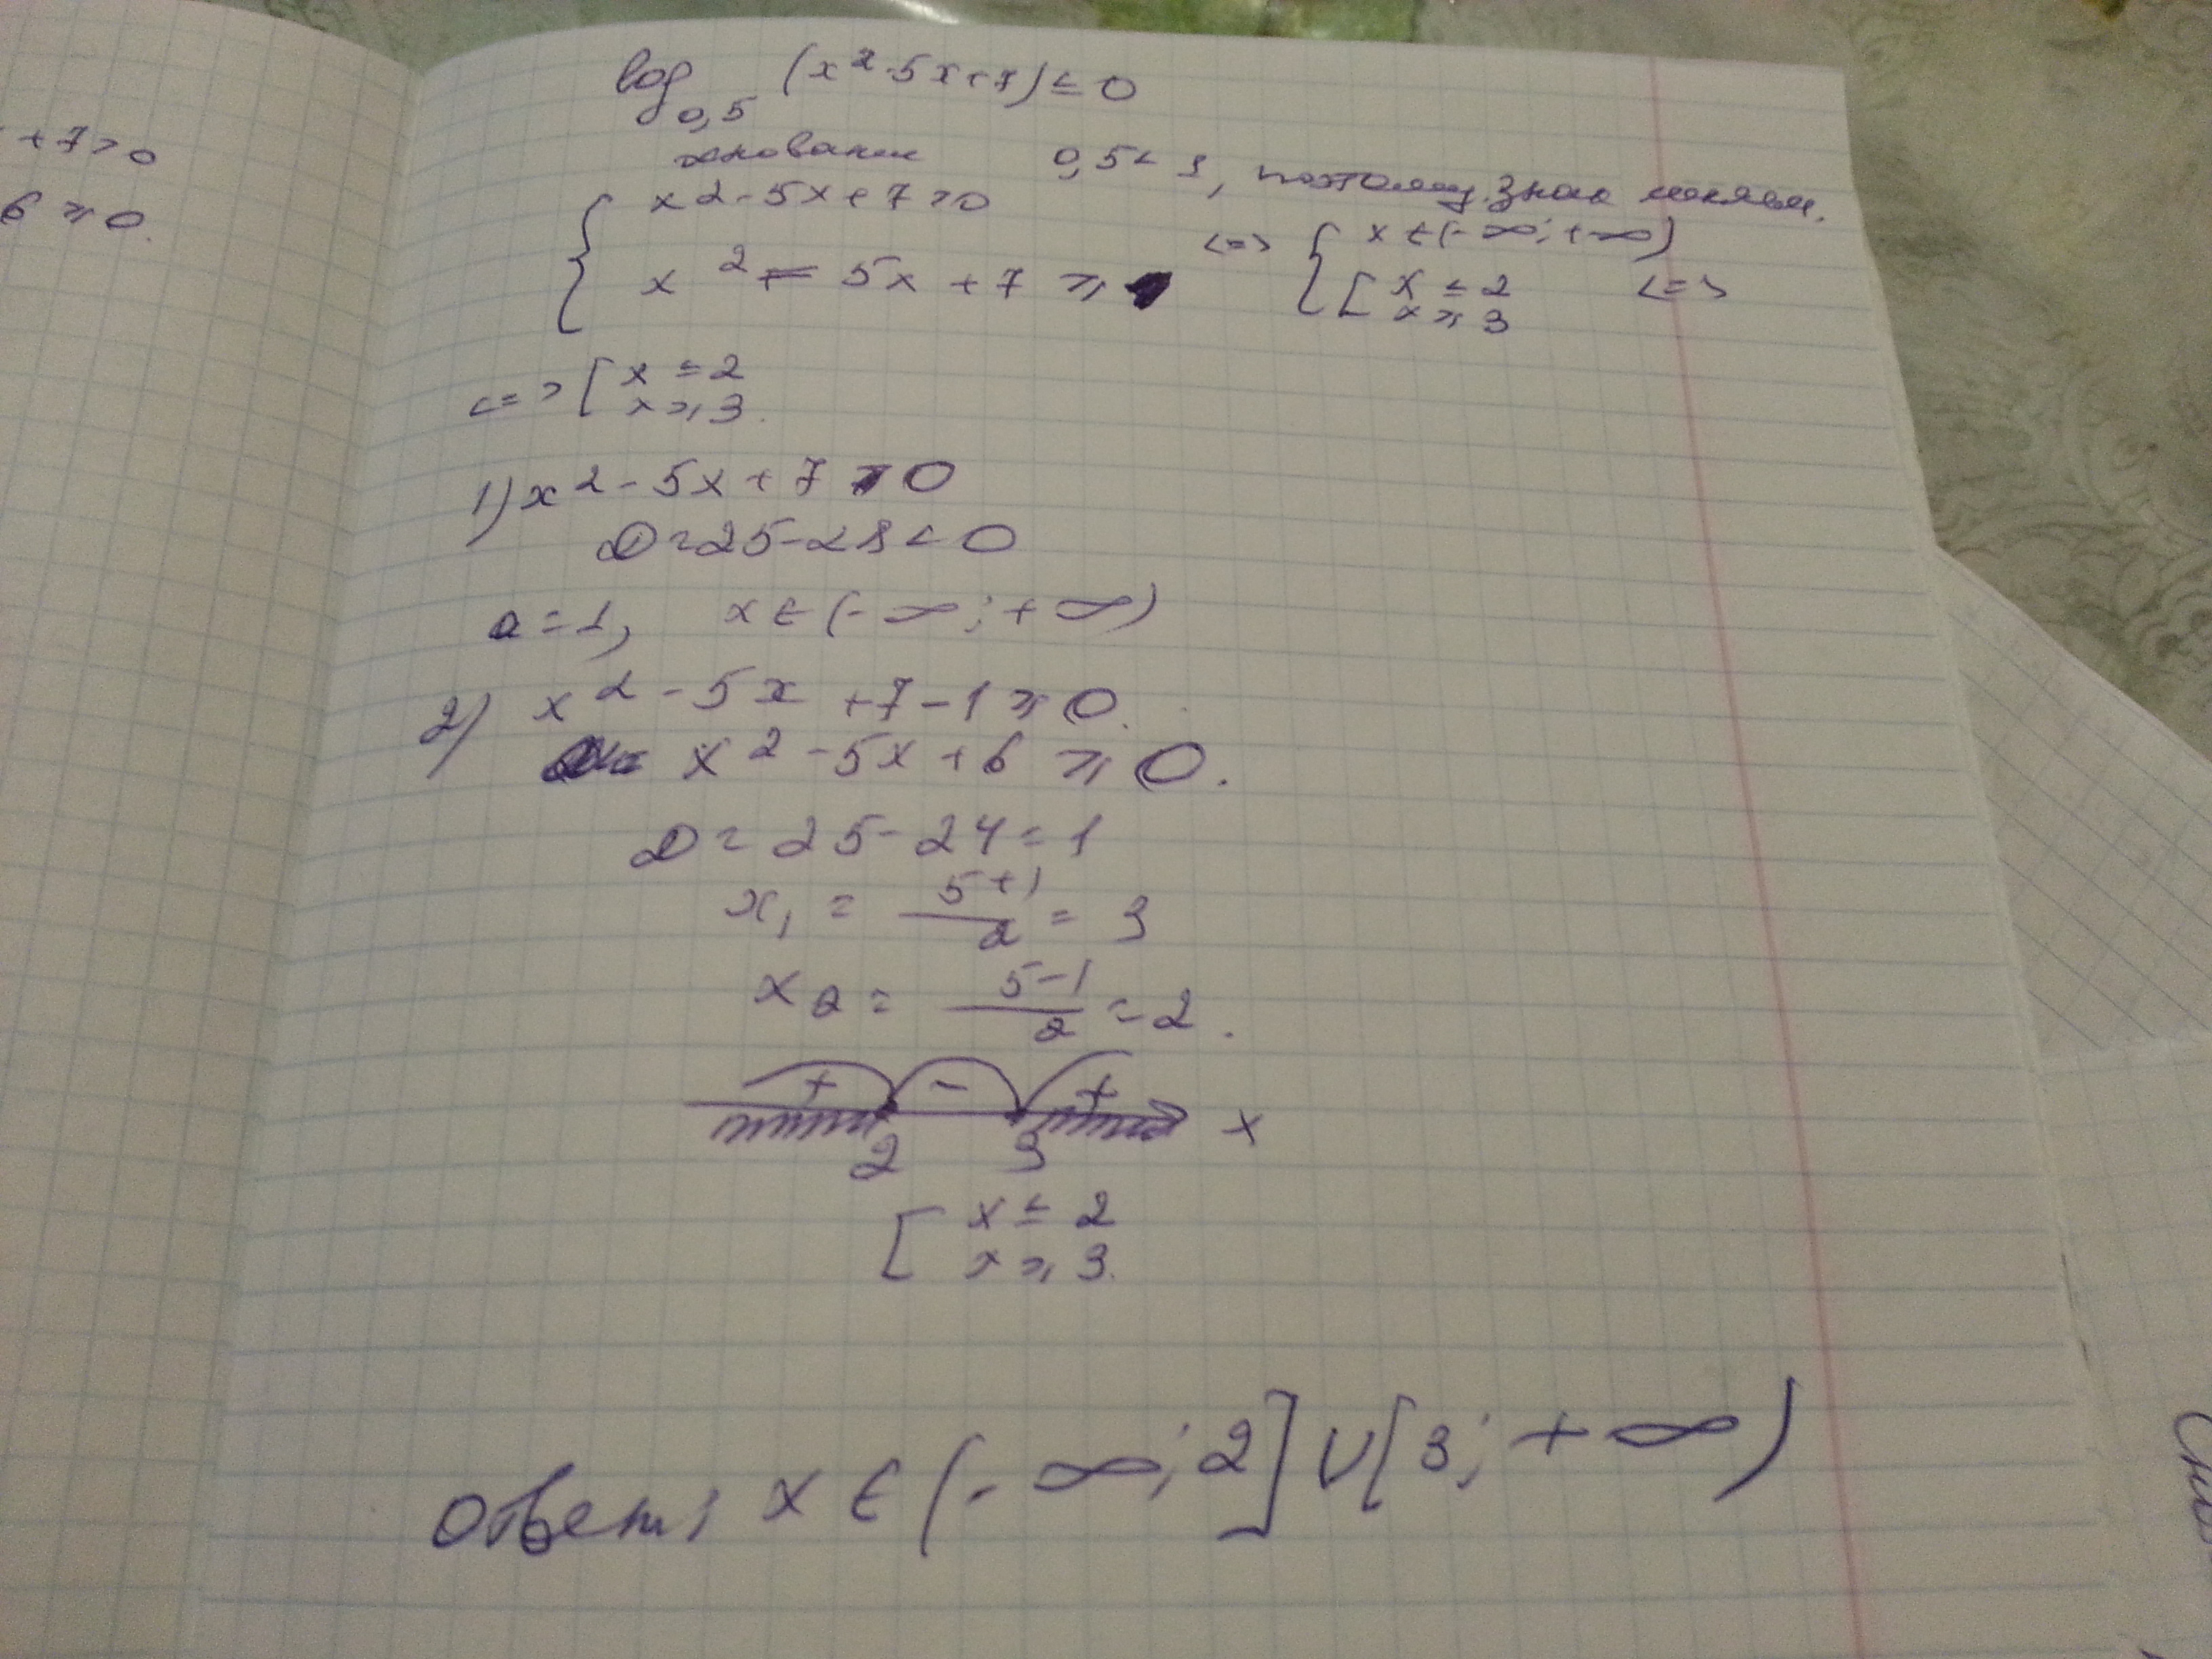 +7>0
6 ⩾ 0.
log₀,₅ (x²-5x+7) ≤ 0
основание 0,5<1, поэтому знак меняем.
{ x²-5x+7>0
x² - 5x + 7 ⩾ 1 <=> { x ∈ (-∞; +∞)
[ x ≤ 2
x ⩾ 3 <=>
<=> [ x ≤ 2
x ⩾ 3.
1) x² - 5x + 7 > 0
D = 25-28 < 0
a = 1, x ∈ (-∞; +∞)
2) x² - 5x + 7 - 1 ⩾ 0.
x² - 5x + 6 ⩾ 0.
D = 25 - 24 = 1
x₁ = (5+1)/2 = 3
x₂ = (5-1)/2 = 2.
+ - +
2 3 x
[ x ≤ 2
x ⩾ 3.
Ответ: x ∈ (-∞; 2] ∪ [3; +∞)